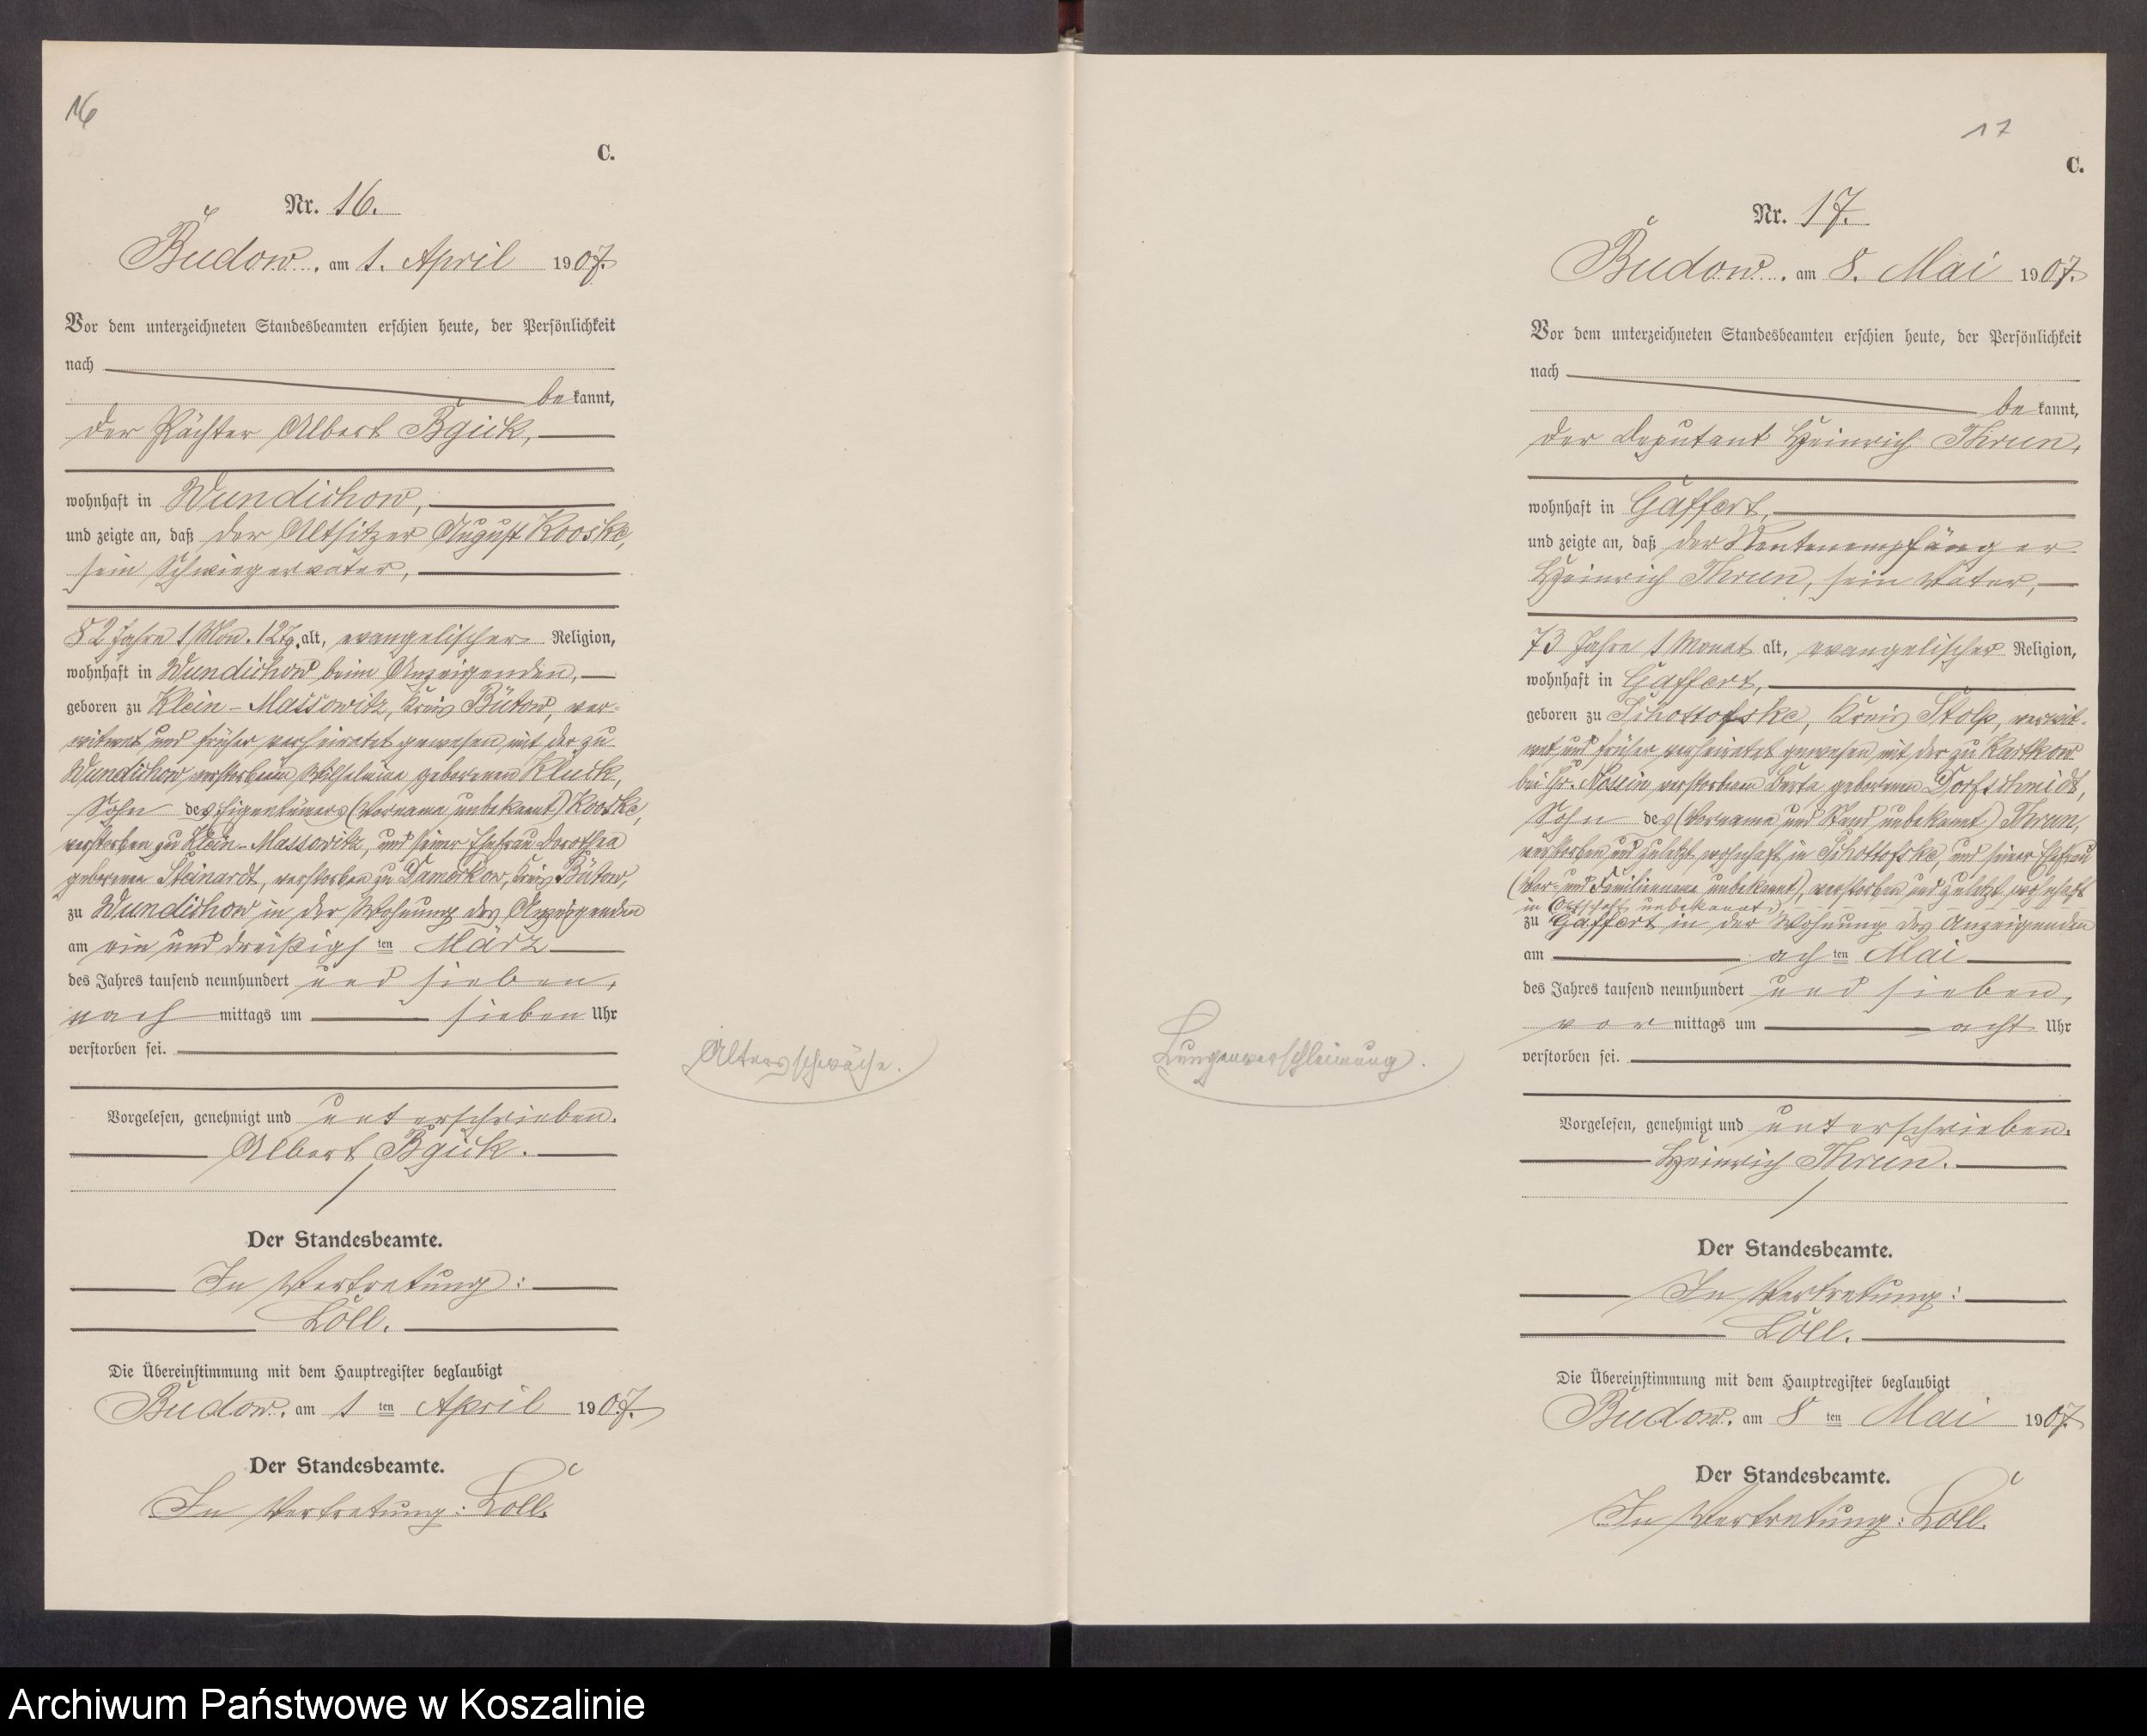 16
C.
Nr. 16.
Budow. am 1. April 1907.
Vor dem unterzeichneten Standesbeamten erschien heute, der Persönlichkeit
nach
be kannt,
der Pächter Albert Bgick,
wohnhaft in Wundichow,
und zeigte an, daß der Altsitzer August Kooske,
sein Schwiegervater,
82 Jahre 1 Mon. 12 Tg. alt, evangelischer Religion,
wohnhaft in Wundichow beim Anzeigenden,
geboren zu Klein-Massowitz, Kreis Bütow, ver-
witwet und früher verheiratet gewesen mit der zu
Wundichow verstorbenen Wilhelmine geborenen Kluck,
Sohn des Eigentümers (Vorname unbekannt) Kooske,
verstorben zu Klein-Massowitz, und seiner Ehefrau Dorothea
geborene Steinardt, verstorben zu Damerkow, Kreis Bütow,
zu Wundichow in der Wohnung des Anzeigenden
am ein und dreißigs ten März
des Jahres tausend neunhundert und sieben,
nach mittags um sieben Uhr
verstorben sei.
Vorgelesen, genehmigt und unterschrieben.
Albert Bgick.
Der Standesbeamte.
In Vertretung:
Löll.
Die Übereinstimmung mit dem Hauptregister beglaubigt
Budow. am 1 ten April 1907.
Der Standesbeamte.
In Vertretung: Löll.
Altersschwäche.
17
C.
Nr. 17.
Budow. am 8. Mai 1907.
Vor dem unterzeichneten Standesbeamten erschien heute, der Persönlichkeit
nach
be kannt,
der Deputant Heinrich Thrun,
wohnhaft in Gaffert,
und zeigte an, daß der Rentenempfänger
Heinrich Thrun, sein Vater,
73 Jahre 1 Monat alt, evangelischer Religion,
wohnhaft in Gaffert,
geboren zu Schottofske, Kreis Stolp, verwit-
wet und früher verheiratet gewesen mit der zu Kartkow
bei Gr. Nossin verstorbenen Berta geborenen Dorfschmidt,
Sohn des (Vorname und Stand unbekannt) Thrun,
verstorben und zuletzt wohnhaft in Schottofske, und seiner Ehefrau
(Vor- und Familienname unbekannt), verstorben und zuletzt wohnhaft
in (Ortschaft unbekannt.)
zu Gaffert in der Wohnung des Anzeigenden
am ach ten Mai
des Jahres tausend neunhundert und sieben,
vor mittags um acht Uhr
verstorben sei.
Vorgelesen, genehmigt und unterschrieben.
Heinrich Thrun.
Der Standesbeamte.
In Vertretung:
Löll.
Die Übereinstimmung mit dem Hauptregister beglaubigt
Budow. am 8 ten Mai 1907.
Der Standesbeamte.
In Vertretung: Löll.
Lungenverschleimung.
Archiwum Państwowe w Koszalinie